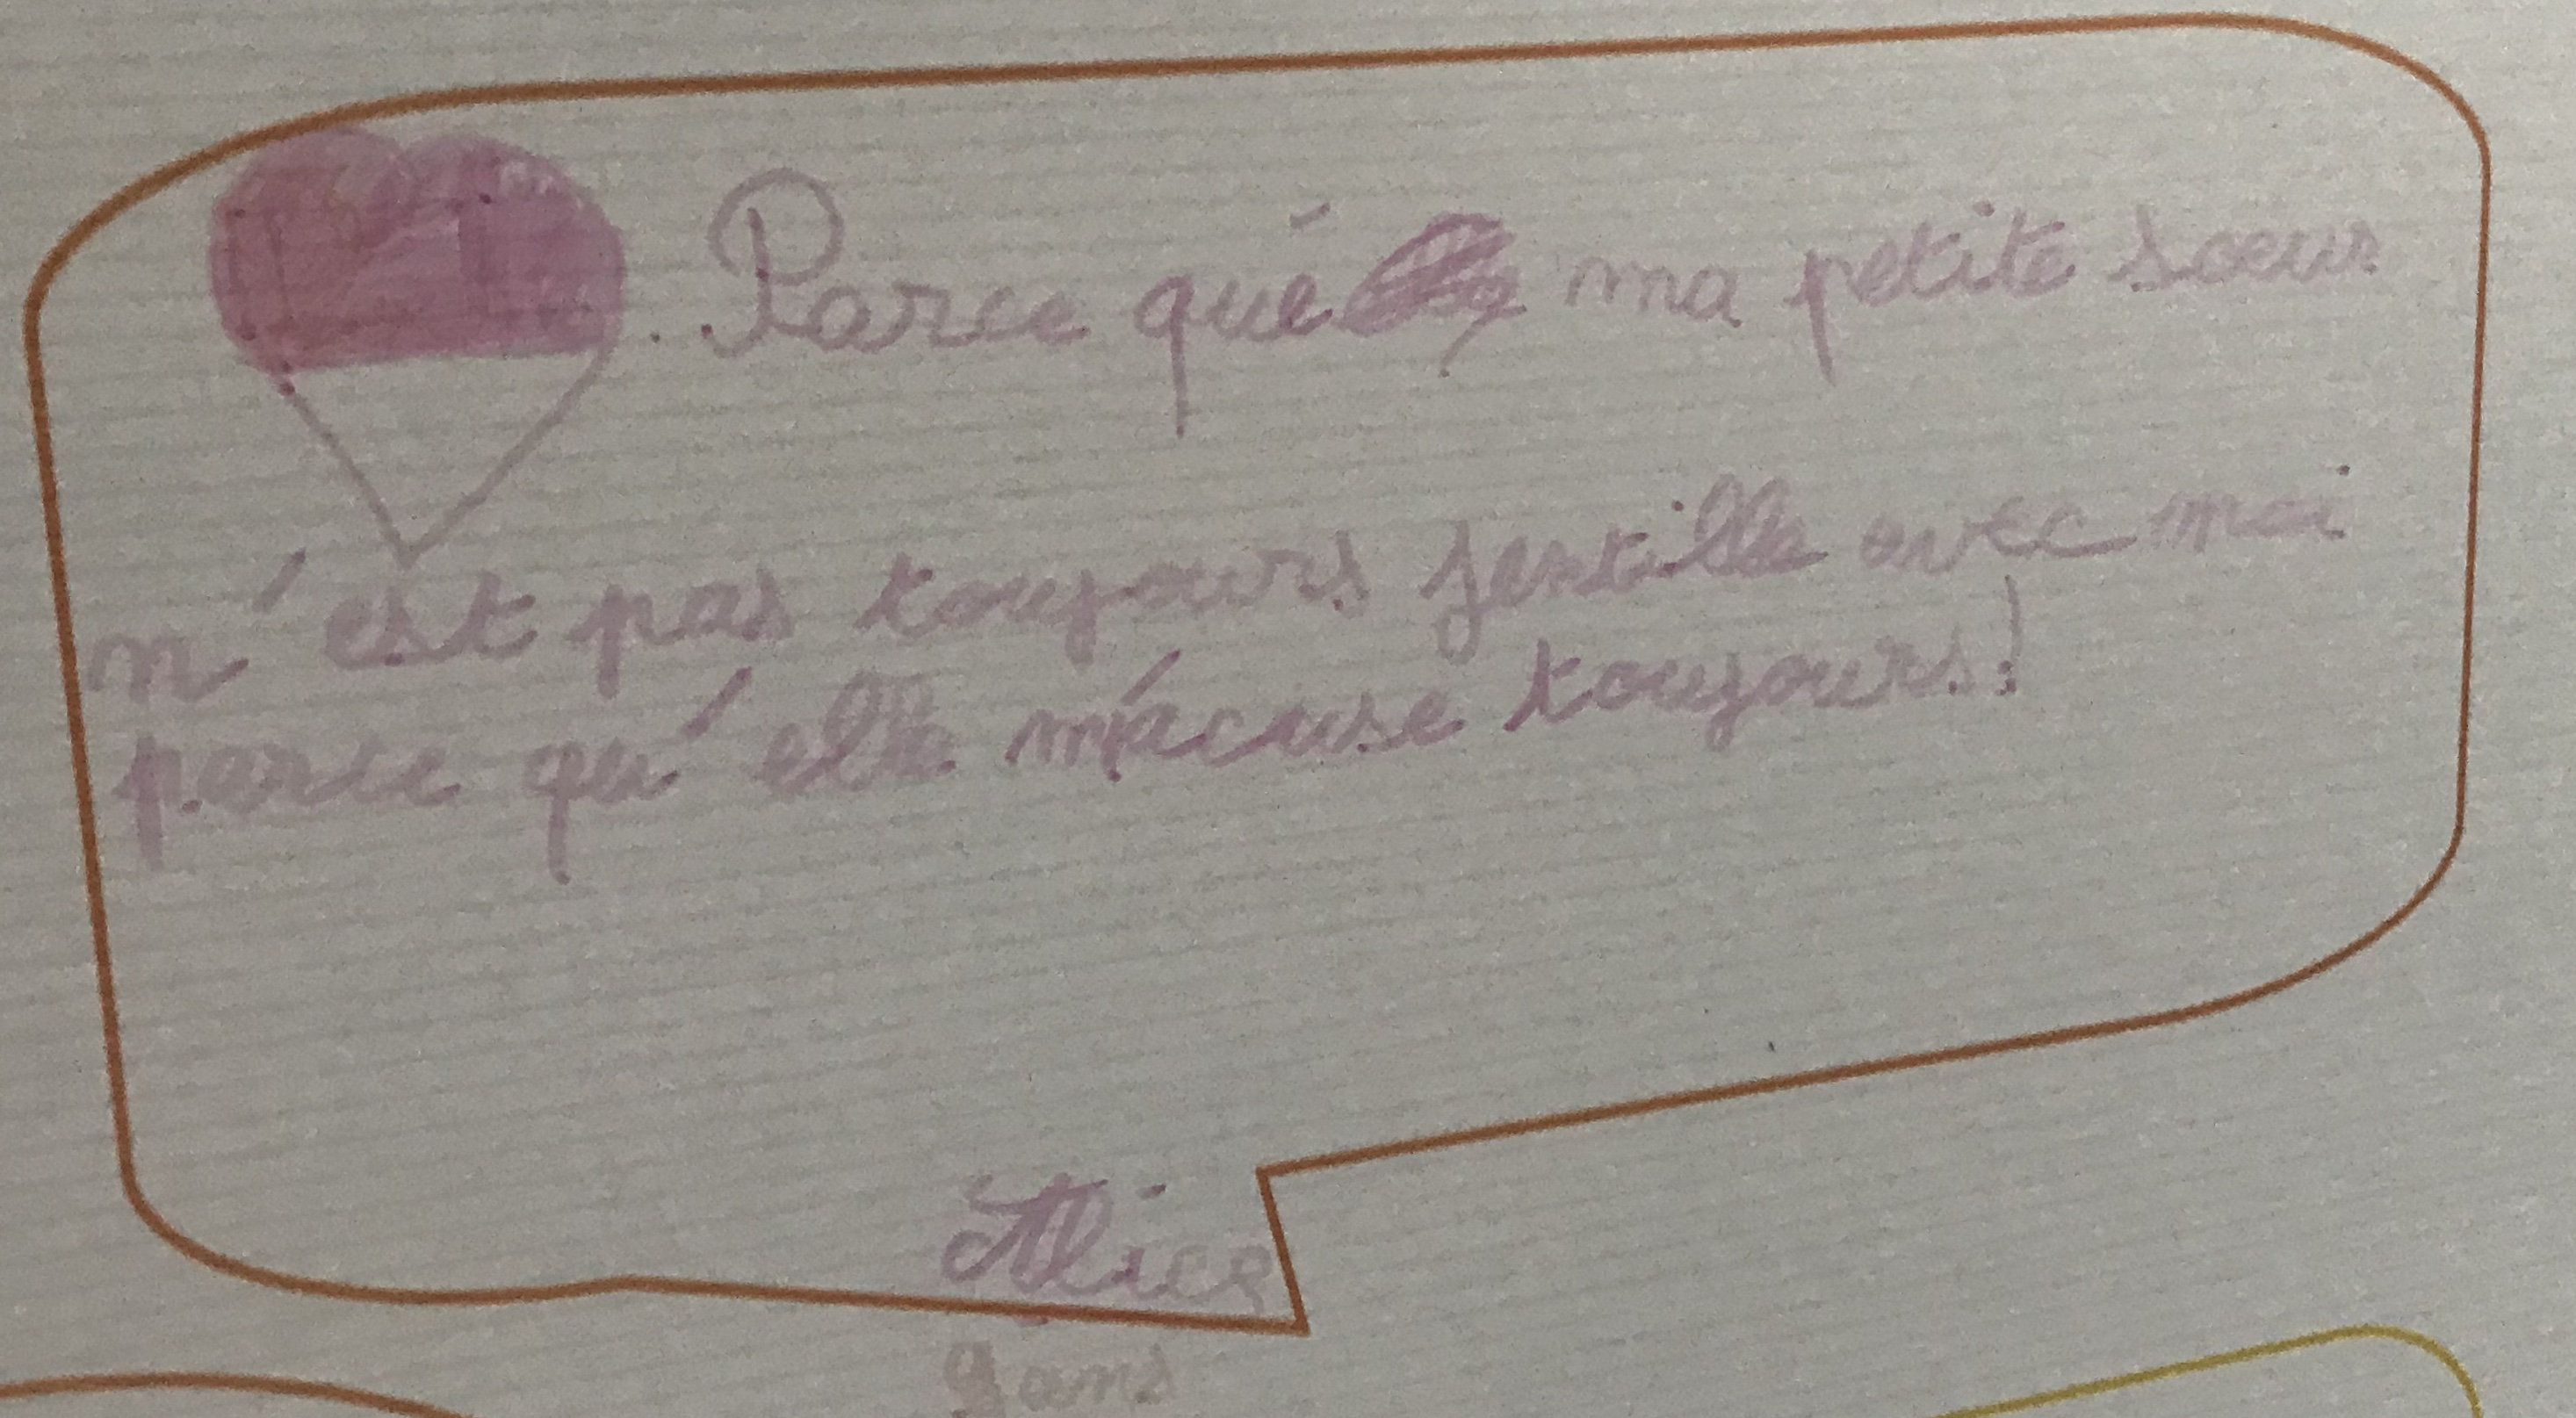 Parce qué ma petite sœur
n'est pas toujours jentille avec moi
parce qu'elle m'acuse toujours!
Alice
9 ans